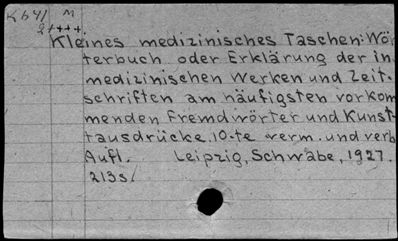 K 641 M
2++++
Kleines medizinisches Taschen-Wör
terbuch oder Erklärung der in
medizinischen Werken und Zeit-
schriften am häufigsten vorkom
menden Fremdwörter und Kunst-
tausdrücke. 10-te verm. und verb
Aufl. Leipzig, Schwabe, 1927.
213s/